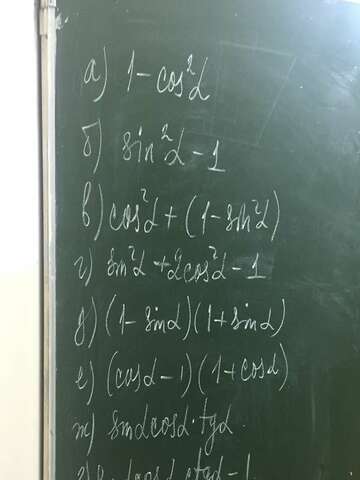 а) 1 - cos²α
б) sin²α - 1
в) cos²α + (1 - sin²α)
г) sin²α + 2cos²α - 1
д) (1 - sinα)(1 + sinα)
е) (cosα - 1)(1 + cosα)
ж) sinα cosα · tgα.